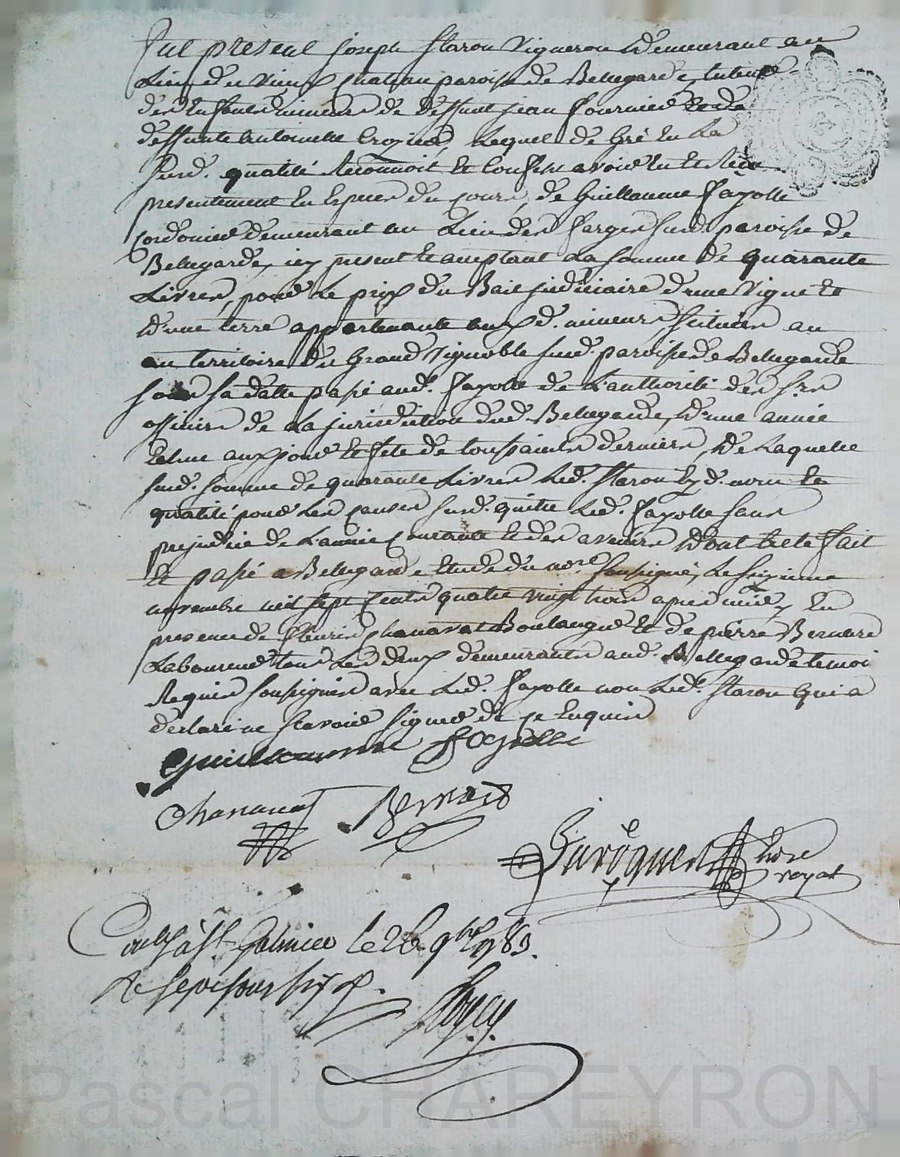 fut present Joseph Staron Vigneron demeurant au
Lieu du vieux chateau paroisse de Bellegarde, tuteur
des Enfants mineurs de deffunt jean fournier et de
deffunte antoinette Crozier, Lequel de Gré En La
susd. qualité Reconnoit et Confesse avoir Eu et Reçu
presentement En Especes du cours, de Guillaume fayolle
Cordonier demeurant au Lieu des farges susd. paroisse de
Bellegarde, icy present et acceptant La somme de quarante
Livres, pour Le prix du Bail judiciaire d'une vigne et
d'une terre appartenante auxd. mineurs situées au
au territoire du Grand Vignoble susd. paroisse de Bellegarde
sous sa datte passé aud. fayolle de L'authorité des srs
officiers de La jurisdiction dud. Bellegarde, d'une année
Echue aux jour et fête de toussaints derniere, de Laquelle
susd. somme de quarante Livres Led. Staron Esd. nom et
qualité pour Les causes susd. quitte Led. fayolle sans
prejudice de L'année Courante et des avenir dont acte fait
et passé a Bellegarde Etude du nore soussigné, Le seizieme
novembre mil sept Cents quatre vingt trois apres midy, En
presence de fleury Chanavat Boulanger et de pierre Bernard
Laboureur tous Les deux demeurants aud. Bellegarde temoi
Requis soussignés avec Led. fayolle non Led. Staron Qui a
declaré ne scavoir signer de ce Enquis
Guillaumme fayolle
Chanavat Bernard
nore
royal
Conlé à St. Galmier le 26. 9bre 1783.